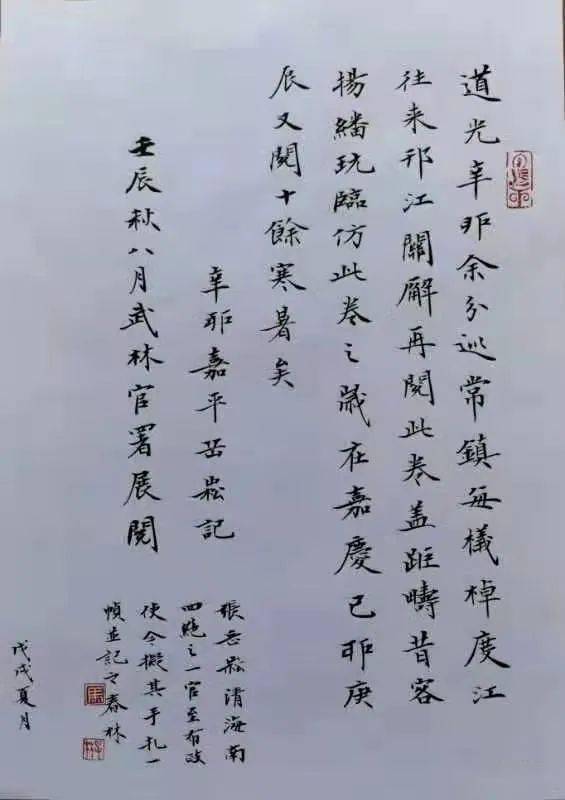 道光辛耶余分巡常鎮每檥棹度江
往来邗江關廨再閱此卷盖距疇昔客
揚繙玩臨仿此卷之歲在嘉慶己耶庚
辰又閱十餘寒暑矣
辛耶嘉平岳崧記
壬辰秋八月武林官署展閱
張岳崧清海南
四絕之一官至布政
使今擬其手札一
幀並記之春林
戊戌夏月